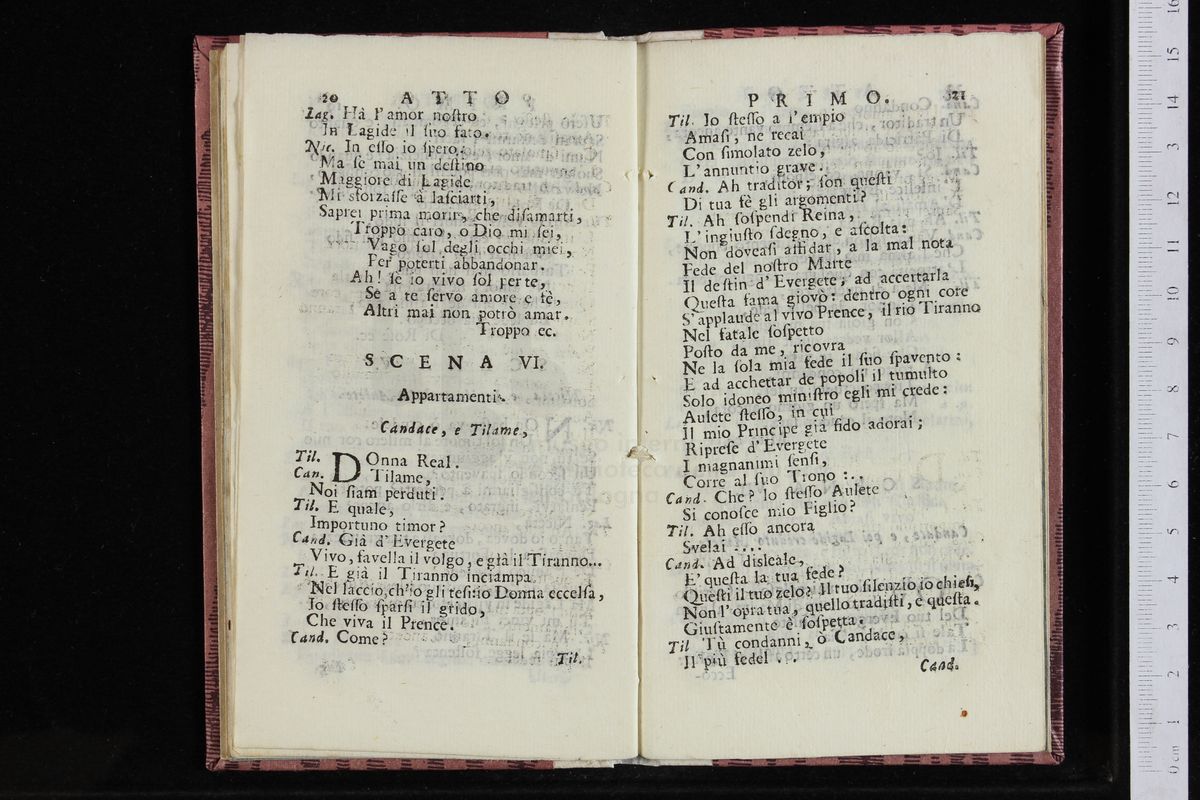 20 ATTO
Lag. Hà l'amor nostro
In Lagide il suo fato.
Nic. In esso io spero,
Ma se mai un destino
Maggiore di Lagide
Mi sforzasse à lasciarti,
Saprei prima morir, che disamarti,
Troppo caro, o Dio mi sei,
Vago sol degli occhi miei,
Per poterti abbandonar.
Ah! se io vivo sol per te,
Se a te servo amore e fè,
Altri mai non potrò amar.
Troppo ec.
SCENA VI.
Appartamenti.
Candace, e Tilame,
Til. DOnna Real.
Can. Tilame,
Noi siam perduti.
Til. E quale,
Importuno timor?
Cand. Già d'Evergete
Vivo, favella il volgo, e già il Tiranno...
Til. E già il Tiranno inciampa
Nel laccio, ch'io gli tesi: o Donna eccelsa,
Io stesso sparsi il grido,
Che viva il Prence.
Cand. Come?
Til.
PRIMO. 21
Til. Io stesso a l'empio
Amasi, ne recai
Con simolato zelo,
L'annuntio grave.
Cand. Ah traditor; son questi
Di tua fè gli argomenti?
Til. Ah sospendi Reina,
L'ingiusto sdegno, e ascolta:
Non doveasi affidar, a la mal nota
Fede del nostro Marte
Il destin d'Evergete; ad accertarla
Questa fama giovò: dentro ogni core
S'applaude al vivo Prence, il rio Tiranno
Nel fatale sospetto
Posto da me, ricovra
Ne la sola mia fede il suo spavento:
E ad acchettar de popoli il tumulto
Solo idoneo ministro egli mi crede:
Aulete stesso, in cui
Il mio Principe già fido adorai;
Riprese d'Evergete
I magnanimi sensi,
Corre al suo Trono :..
Cand. Che? lo stesso Aulete
Si conosce mio Figlio?
Til. Ah esso ancora
Svelai ....
Cand. Ad disleale,
E' questa la tua fede?
Questi il tuo zelo? Il tuo silenzio io chiesi,
Non l'opra tua, quello tradisti, e questa.
Giustamente è sospetta.
Til Tù condanni, ò Candace,
Il più fedel ...
Cand.